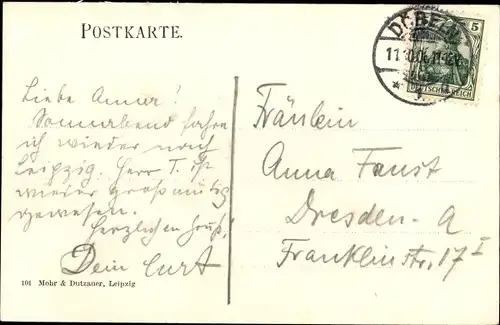 POSTKARTE.
DÖBELN
11.10.06. 11-12V.
5
DEUTSCHES REICH
Liebe Anna!
Sonnabend fahre
ich wieder nach
Leipzig. Herr T. ist
wieder großmütig
gewesen.
Herzlichen Gruß!
Dein Curt
Fräulein
Anna Faust
Dresden-A
Franklinstr. 17 I
101 Mohr & Dutzauer, Leipzig